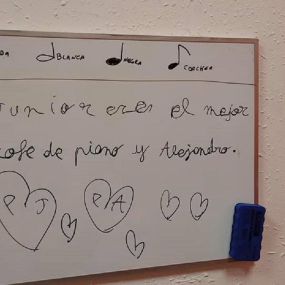 DA BLANCA NEGRA CORCHEA
Junior eres el mejor
profe de piano y Alejandro.
P J P A